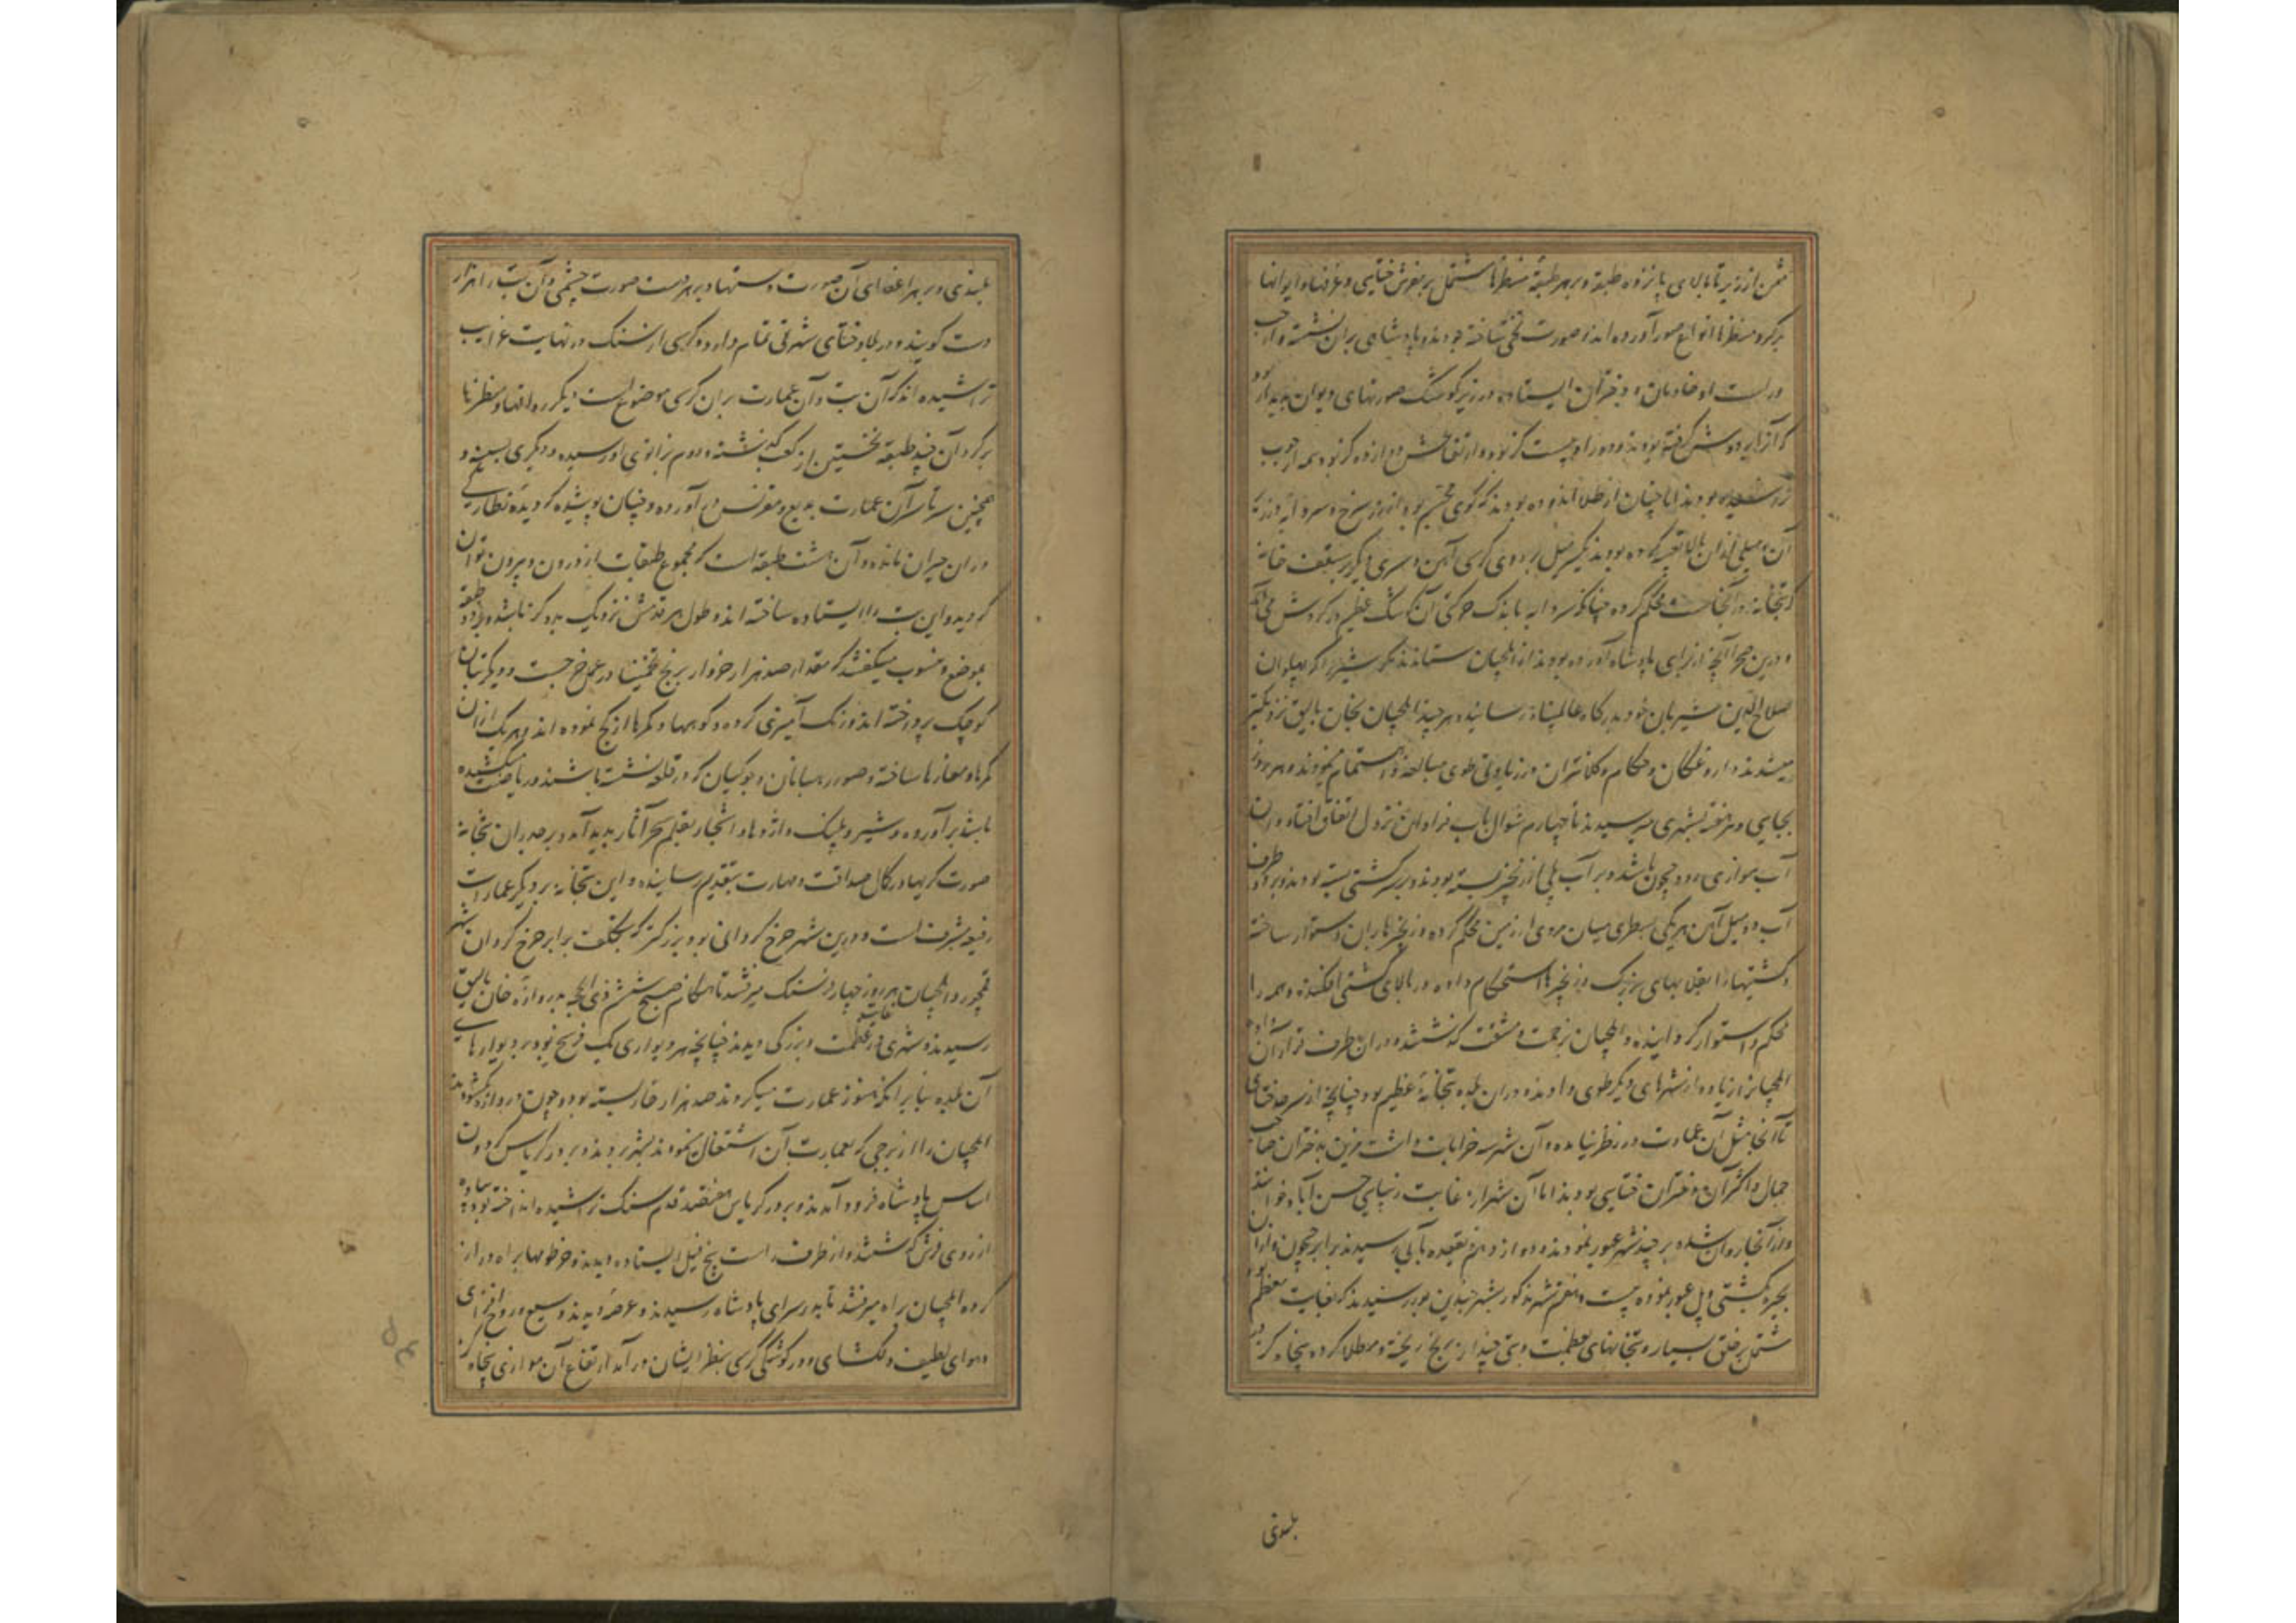 مثمن از زیر تا بالای پانزده طبقه و بهر طبقه منظرها مشتمل بر نقوش ختایی و غرفها و ایوانها
بر کرد منظرها انواع صور آورده اند صورت تختی ساخته بودند و پادشاهی بران نشسته و از چپ
و راست او خادمان و دختران ایستاده در زیر کوشک صورتهای دیوان پدیدار
که آنرا بر دوش گرفته بودند و دور او بیست کز بود و ارتفاعش دوازده کز بود همه از چوب
تراشیده بودند اما چنان از طلا اندوده بودند که کوی مجسم بود از زر سرخ و سردابه در زیر
آن و میلی از آن بالا تعبیه کرده بودند یکسر میل بر روی کرسی آهن و سری دیگر بر سقف خانه
که بتخانه در آنجاست محکم کرده چنانکه در سردابه باندک حرکتی آن کوشک عظیم در کردش می آمد
و درین صحرا آنچه از برای پادشاه آورده بودند از ایلچیان ستاندند مگر شیر را که پهلوان
صلاح الدین شیربان خود بدرکاه عالمپناه رسانید و هر چند ایلچیان بخان بالیق نزدیکتر
میشدند داروغکان و حکام و کلانتران در زیادتی طوی مبالغه و اهتمام مینمودند و هر روز
بجایی و هر هفته بشهری میرسیدند تا چهارم شوال بآب قراموران نزول اتفاق افتاد و آن
آب موازی رود جیحون باشد و بر آب پلی از زنجیر بسته بودند و بر سر کشتی بسته بودند و بر دو طرف
آب دو میل آهن هر یکی بسطبری میان مردی از زمین محکم کرده و زنجیرها بران استوار ساخته
و کشتیها را بقلابهای بزرک و زنجیرها استحکام داده و در بالای کشتی تخته افکنده و همه را
محکم و استوار کردانیده و ایلچیان بی زحمت و مشقت گذشتند و در آن طرف قراموران
ایلچیانرا زیاده از شهرهای دیگر طوی دادند و در آن بلده بتخانه عظیم بود چنانچه از سرحد ختای
تا آنجا مثل آن عمارت در نظر نیامده و آن شهر سه خرابات داشت مزین بدختران صاحب
جمال و اکثر آن دختران ختایی بودند اما آن شهر را از غایت زیبایی حسن آباد خوانند
و از آنجا روان شده بر چند شهر عبور نمودند و دوازدهم ذیقعده بآبی رسیدند برابر جیحون و ازان
بحر بکشتی و پل عبور نموده بیست و هفتم شهر مذکور بشهر صدین فور رسیدند که بغایت معظم بود
مشتمل بر خلق بسیار و بتخانهای بعظمت و بتی چند از برنج ریخته و مطلا کرده پنجاه کز
بلندی
بلندی و بر اعضای آن صورت دستها و بر هر دست صورت چشمی و آن بت را هزار
دست کویند و در بلاد ختای شهرتی تمام دارد و کرسی از سنک در نهایت غرایب
تراشیده اند که آن بت و آن عمارت بران کرسی موضوع است دیکر رواقها و منظرها
بر کرد آن چند طبقه نخستین از کعب گذشته و دوم بزانوی او رسیده و دیگری بسینه و
همچنین سرتاسر آن عمارت بدیع و مقرنس در آورده و چنان پوشیده که دیده نظارگی
دران حیران مانده و آن هشت طبقه است که مجموع طبقات از درون و بیرون توان
کردید و این بت را ایستاده ساخته اند و طول هر قدمش نزدیک بده کز باشد
موضع و منسوب میگفتند که مقدار صد هزار خروار برنج تخمینا در عمل خرجست و دیکر بتان
کوچک پرداخته اند و رنک آمیزی کرده و کوهها و کمرها از کچ نموده اند و هر یک ازان
کمرها و مغارها ساخته و صور رهبانان و جوکیان که در قله نشسته باشند و ریاضت کشیده
باشند بر آورده و شیر و پلنک و اژدها و اشجار بقلم سحر آثار پدید آمده و بر جدران بتخانه
صورت کریها در کمال حذاقت و مهارت بتقدیم رسانیده و این بتخانه بر دیکر عمارات
رفیعه مشرف است و درین شهر چرخ کردانی بود بزرکتر که بتکلف برابر چرخ کردان شهر
قمجو و ایلچیان هر روز چهار فرسنک میرفتند تا هنگام صبح ششم ذی الحجه بدروازه خان بالیق
رسیدند و شهری در غایت عظمت و بزرگی دیدند چنانچه هر دیواری یک فرسخ بود و بر دیوارهای
آن بلده بنابر آنکه هنوز عمارت میکردند صد هزار خار بسته بود و چون دروازه نکشوده بودند
ایلچیان را از برجی که بعمارت آن اشتغال مینمودند بشهر بردند و بر در کریاس گردون
اساس پادشاه فرود آمدند و بر در کریاس هفتصد قدم سنک تراشیده انداخته بودند پیاده
از روی فرش گذشتند و از طرف راست پنج فیل ایستاده دیدند و خرطومها براه دراز
کرده ایلچیان براه میرفتند تا بدر سرای پادشاه رسیدند و عرصه دیدند وسیع و روح افزای
و هوای لطیف و دلکشای و در کوشکی کرسی بنظر ایشان در آمد ارتفاع آن موازی پنجاه کز